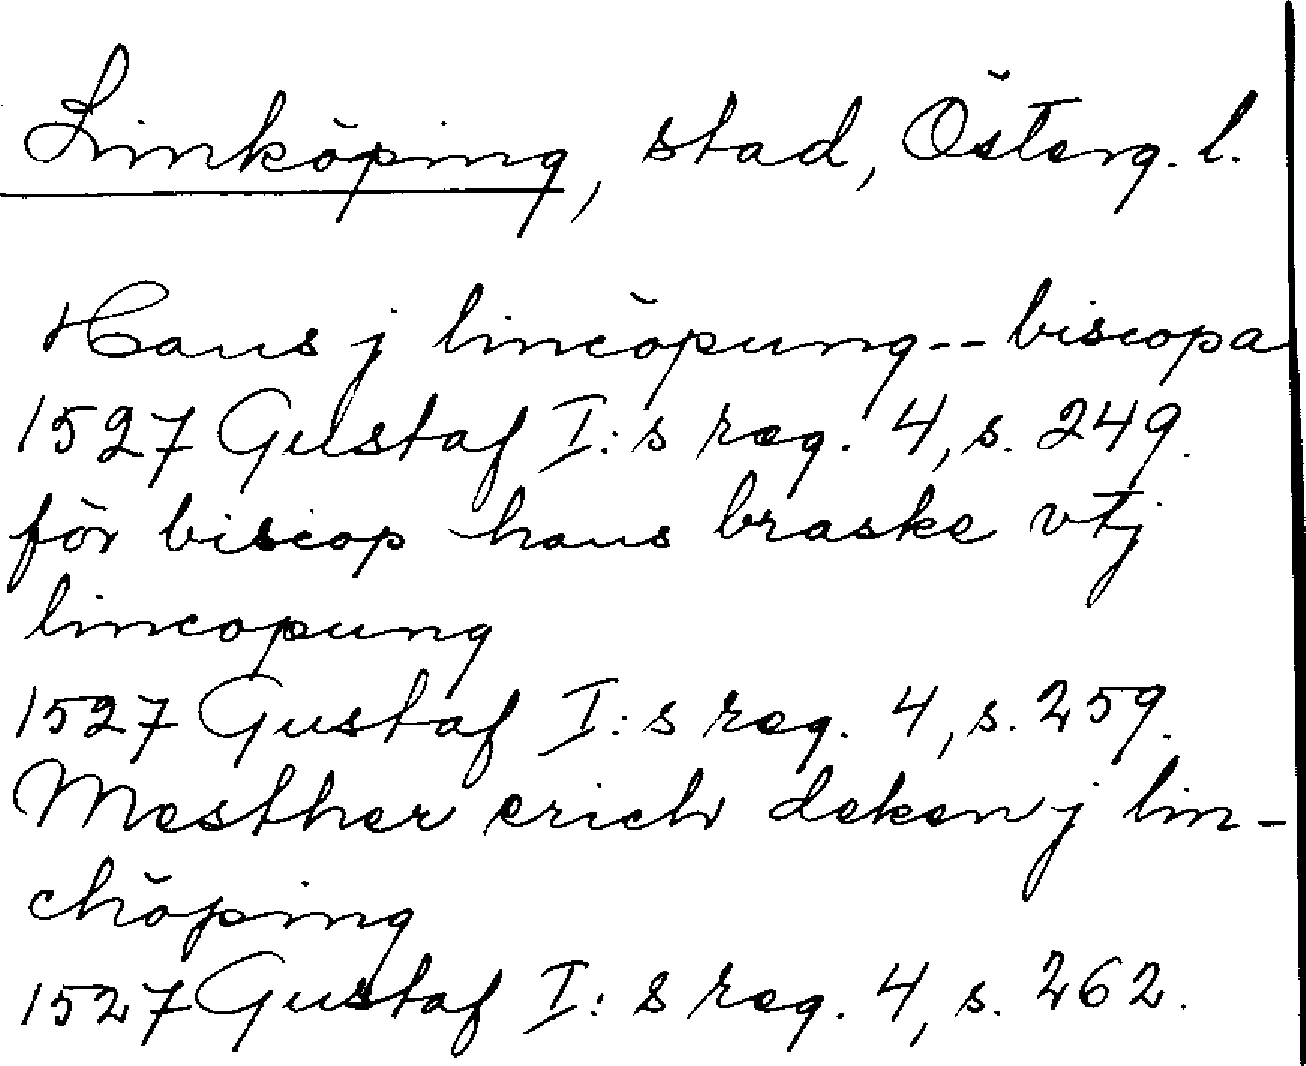 Linköping, stad, Österg. l.
Hans j lincöpung -- biscopa
1527 Gustaf I:s reg. 4, s. 249.
för biscop hans braske vtj
lincopung
1527 Gustaf I:s reg. 4, s. 259.
Mesther erich deken j lin-
chöping
1527 Gustaf I:s reg. 4, s. 262.